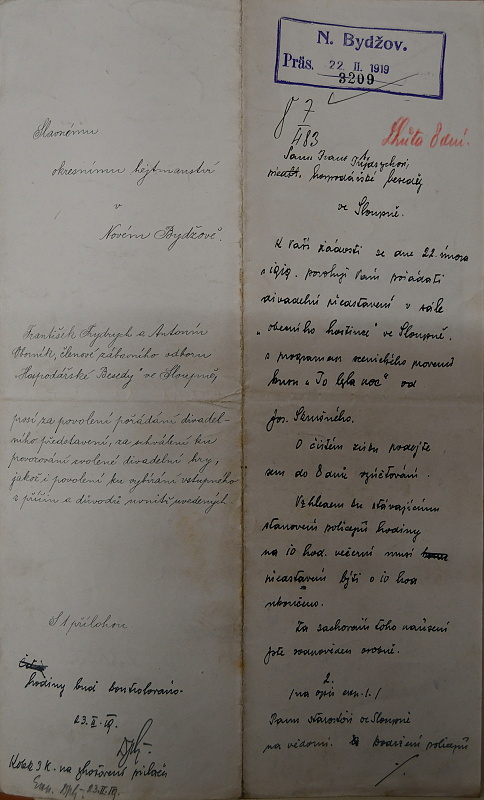 Slavnému
okresnímu hejtmanství
v
Novém Bydžově.
František Frydrych a Antonín
členové zábavního odboru
„Hospodářské Besedy" ve Sloupně,
prosí za povolení pořádání divadel-
ního představení, za schválení ku
provozování zvolené divadelní hry,
jakož i povolení ku vybírání vstupného
z příčin a důvodů uvnitř uvedených.
S 1 přílohou
hodiny buď kontrolováno.
23.II.19.
Kolek 3 K. na
23.II.19.
N. Bydžov.
Präs. 22 II. 1919
3209
7
I
483
Lhůta 8 dní.
Panu Frant.
hospodářské besedy
ve Sloupně.
K Vaší žádosti ze dne 22. února
1919. povoluji Vám pořádati
divadelní představení v sále
„obecního hostince" ve Sloupně.
s programem scenického provozu
kusu „To byla noc" od
Jos. Skružného.
O čistém zisku podejte
sem do 8 dnů vyúčtování.
Vzhledem ku stávajícímu
stanovení policejní hodiny
na 10 hod. večerní musí
představení býti o 10 hod
ukončeno.
Za zachování toho nařízení
jste zodpověden osobně.
2.
/na opis exp. 1./
Panu starostovi ve Sloupně
na vědomí. policejní